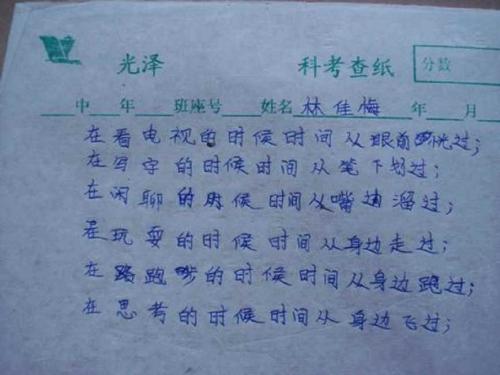 光泽 科考查纸 分数
中 年 班座号 姓名 林佳梅 年 月
在看电视的时候时间从眼前恍过;
在写字的时候时间从笔下划过;
在闲聊的时候时间从嘴边溜过;
在玩耍的时候时间从身边走过;
在跑步的时候时间从身边跑过;
在思考的时候时间从身边飞过;